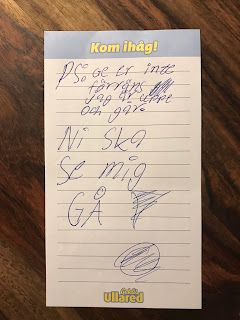 Kom ihåg!
PS: ge er inte
förrän
jag är uppe
och går.
Ni ska
se mig
GÅ
Gekås
Ullared